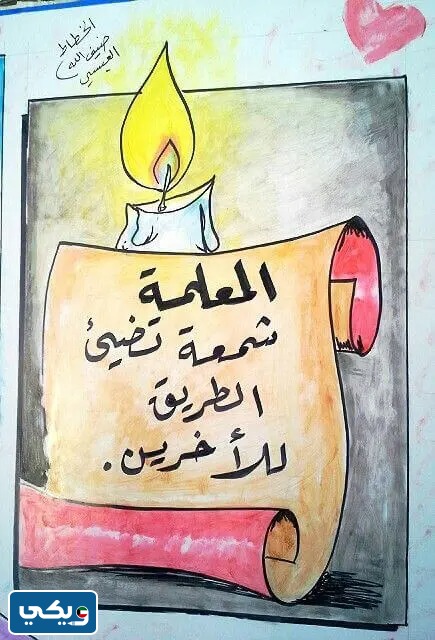 الخطاط
ضيف الله
العيسي
المعلمة
شمعة تضيئ
الطريق
للأخرين.
ويكي